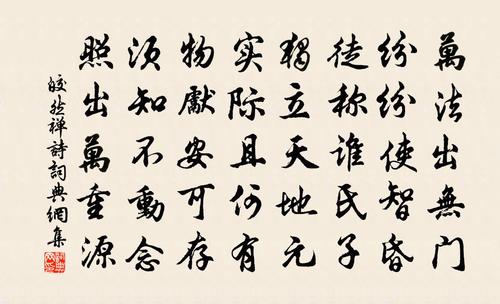 萬法出無門
紛紛使智昏
徒称誰民子
獨立天地元
实际且何有
物獻安可存
须知不動念
照出萬重源
皎然禅詩詞典網集